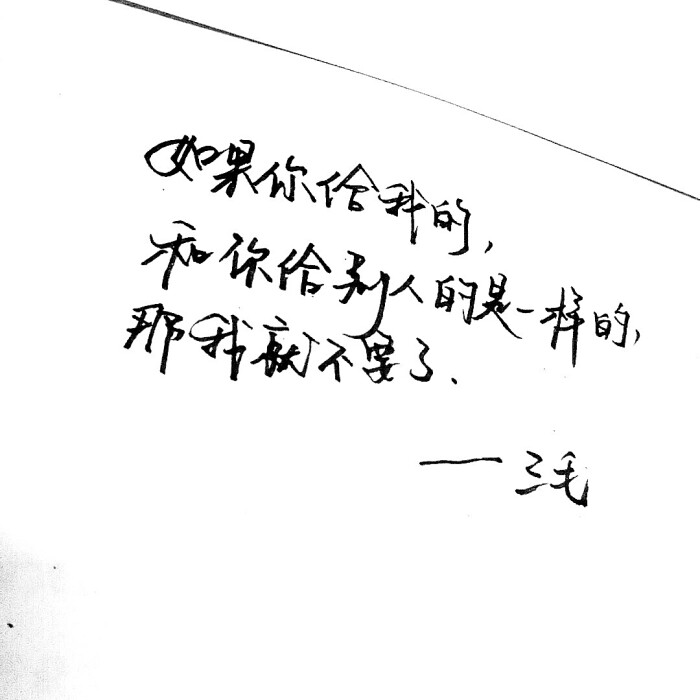 如果你给我的,
和你给别人的是一样的,
那我就不要了.
——三毛